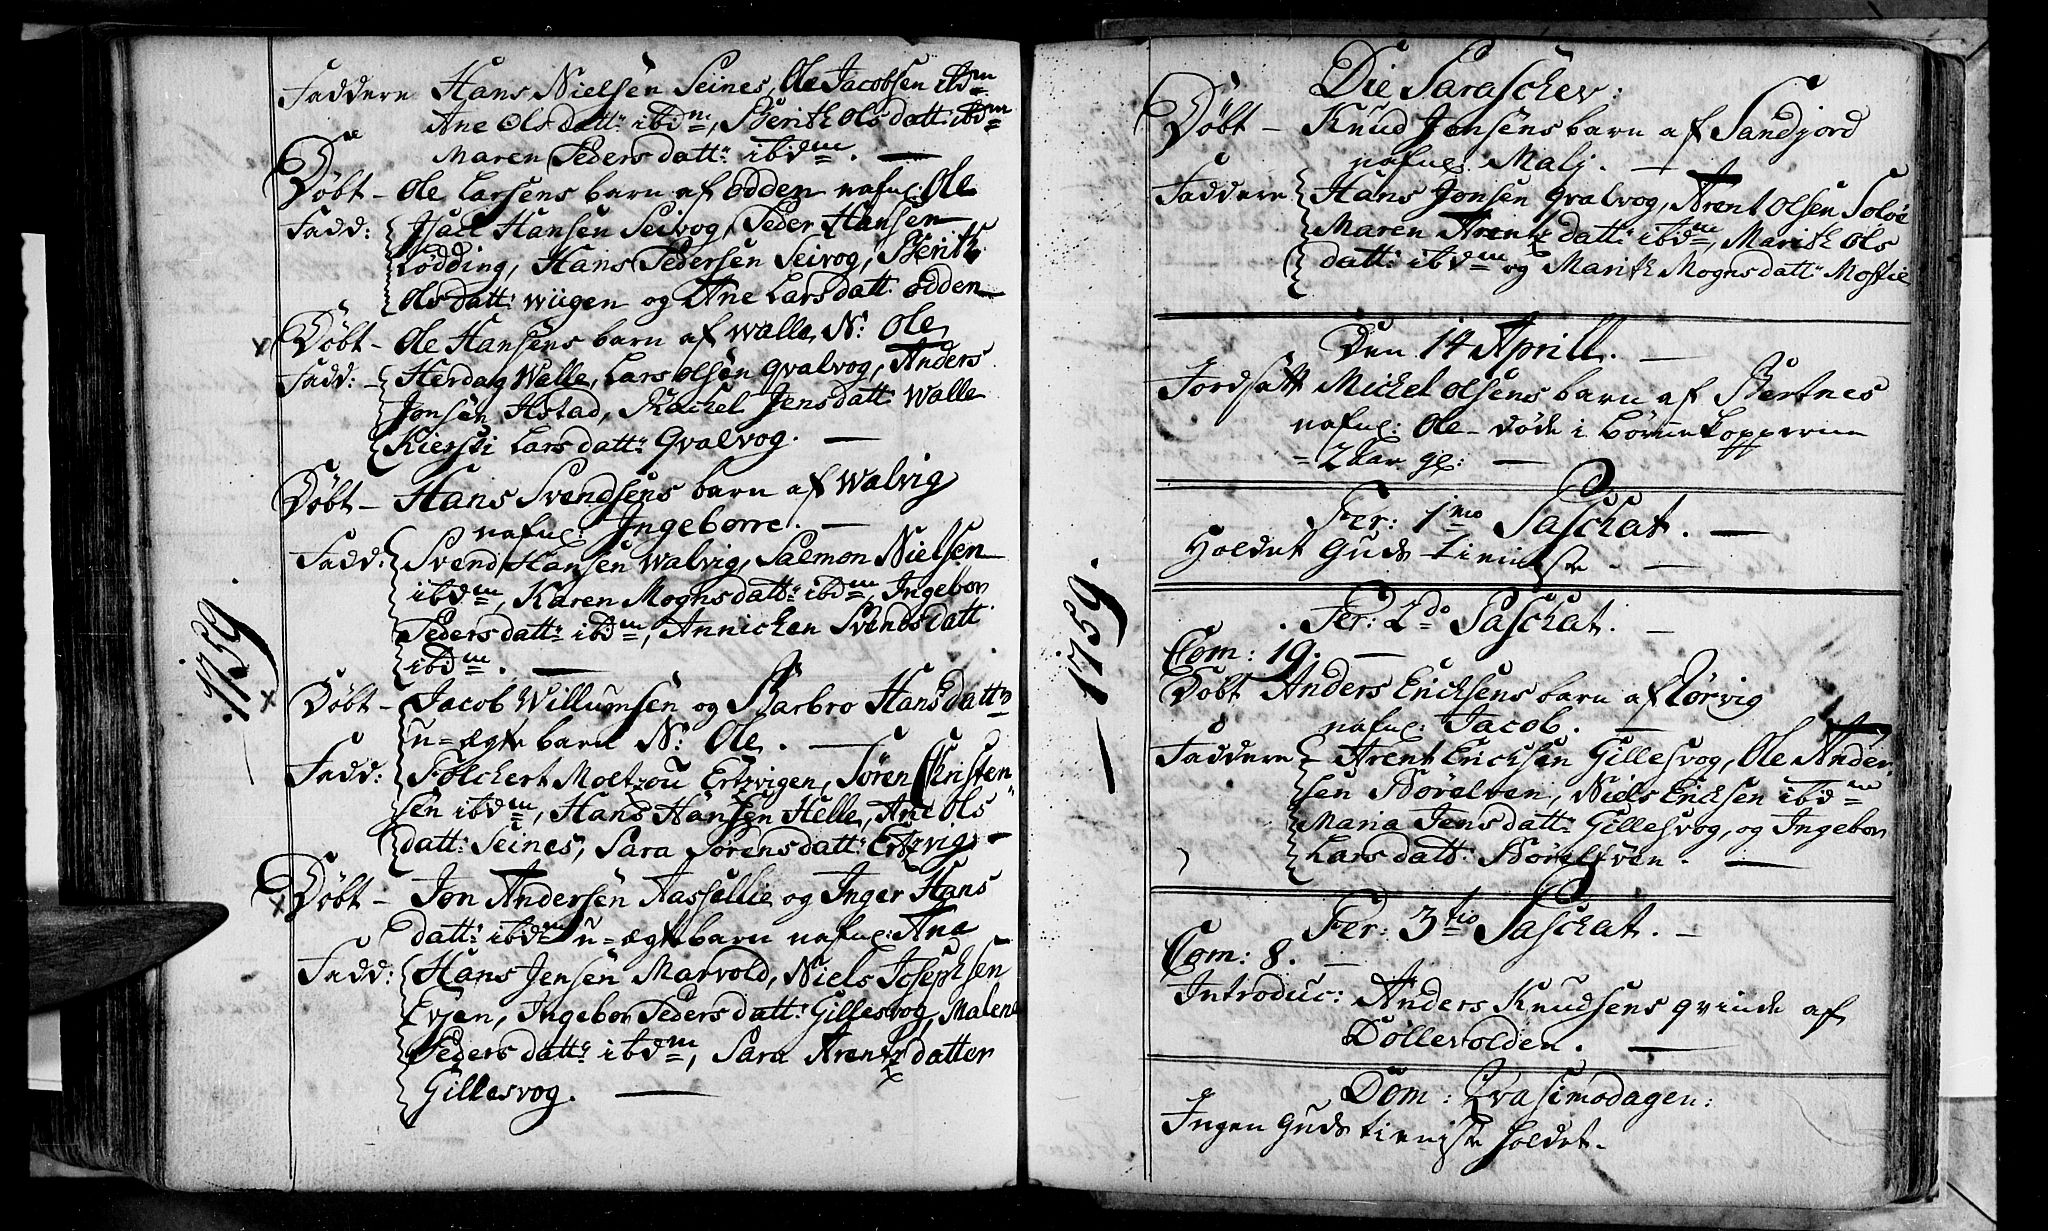 1759.
Faddere Hans Nielsen Seines, Ole Jacobsen ibdm
Ane Olsdattr: ibdm, Berith Olsdattr: ibdm
Maren Pedersdattr: ibdm. —
Døbt – Ole Larsens barn af Odden nafnl: Ole
Fadd: Isac Hansen Seivog, Peder Hansen
Lødding, Hans Pedersen Seivog, Berith
Olsdattr: Wiigen og Ane Larsdattr: Odden
Døbt – Ole Hansens barn af Walle, N: Ole
Fadd: – Herdag Walle, Lars Olsen Qvalvog, Anders
Jonsen Hstad, Rachel Jensdattr: Walle
Kiersti Larsdattr: Qvalvog. —
Døbt – Hans Svendsens barn af Walvig
nafnl: Ingeborre. —
Fadd: Svend Hansen Walvig, Salmon Nielsen
ibdm, Karen Mognsdattr: ibdm, Ingebor
Pedersdattr: ibdm, Annichen Svendsdatt
ibdm. —
Døbt – Jacob Willumsen og Barbro Hansdattrs
u=ægte barn N: Ole. —
Fadd: Folchert Moltzou Ertzvigen, Søren Christen
sen ibdm, Hans Hansen Helle, Ane Ols
dattr: Seines, Sara Sørensdattr: Ertzvig –
Døbt – Jon Andersen Aasselie og Inger Hans
dattr: ibdm u=ægte barn nafnl: Ane
Fadd: Hans Jensen Marvold, Niels Josephsen
Evjen, Ingebor Pedersdattr: Gillesvog, Malene
Pedersdattr: ibdm, Sara Arentzdatter
Gillesvog. —
1759.
Die Paraschev:
Døbt – Knud Jensens barn af Sandjord
nafnl: Malj. —
Faddere Hans Jonsen Qvalvog, Arent Olsen Soløe
Maren Arentzdattr: ibdm, Marith Ols
dattr: ibdm og Marith Mognsdattr: Mostie
Den 14 Aprill. —
Jordsatt Michel Olsens barn af Bertnes
nafnl: Ole – døde i Børnekopperne
– 2 Aar gl: —
Fer: 1mo Paschat. —
Holdet Guds tieniste. —
Fer: 2do Paschat. —
Com: 19. —
Døbt Anders Ericksens barn af Tørvig
nafnl: Jacob. —
Faddere – Arent Ericksen Gillesvog, Ole Ander
sen Børelven, Niels Ericksen ibdm
Maria Jensdattr: Gillesvog, og Ingebor
Larsdattr: Børelven. —
Fer: 3tio Paschat. —
Com: 8. —
Introduc: Anders Knudsens qvinde af
Dollevolden. —
Dom: Qvasimodagen:
Ingen Guds tieniste holdet.